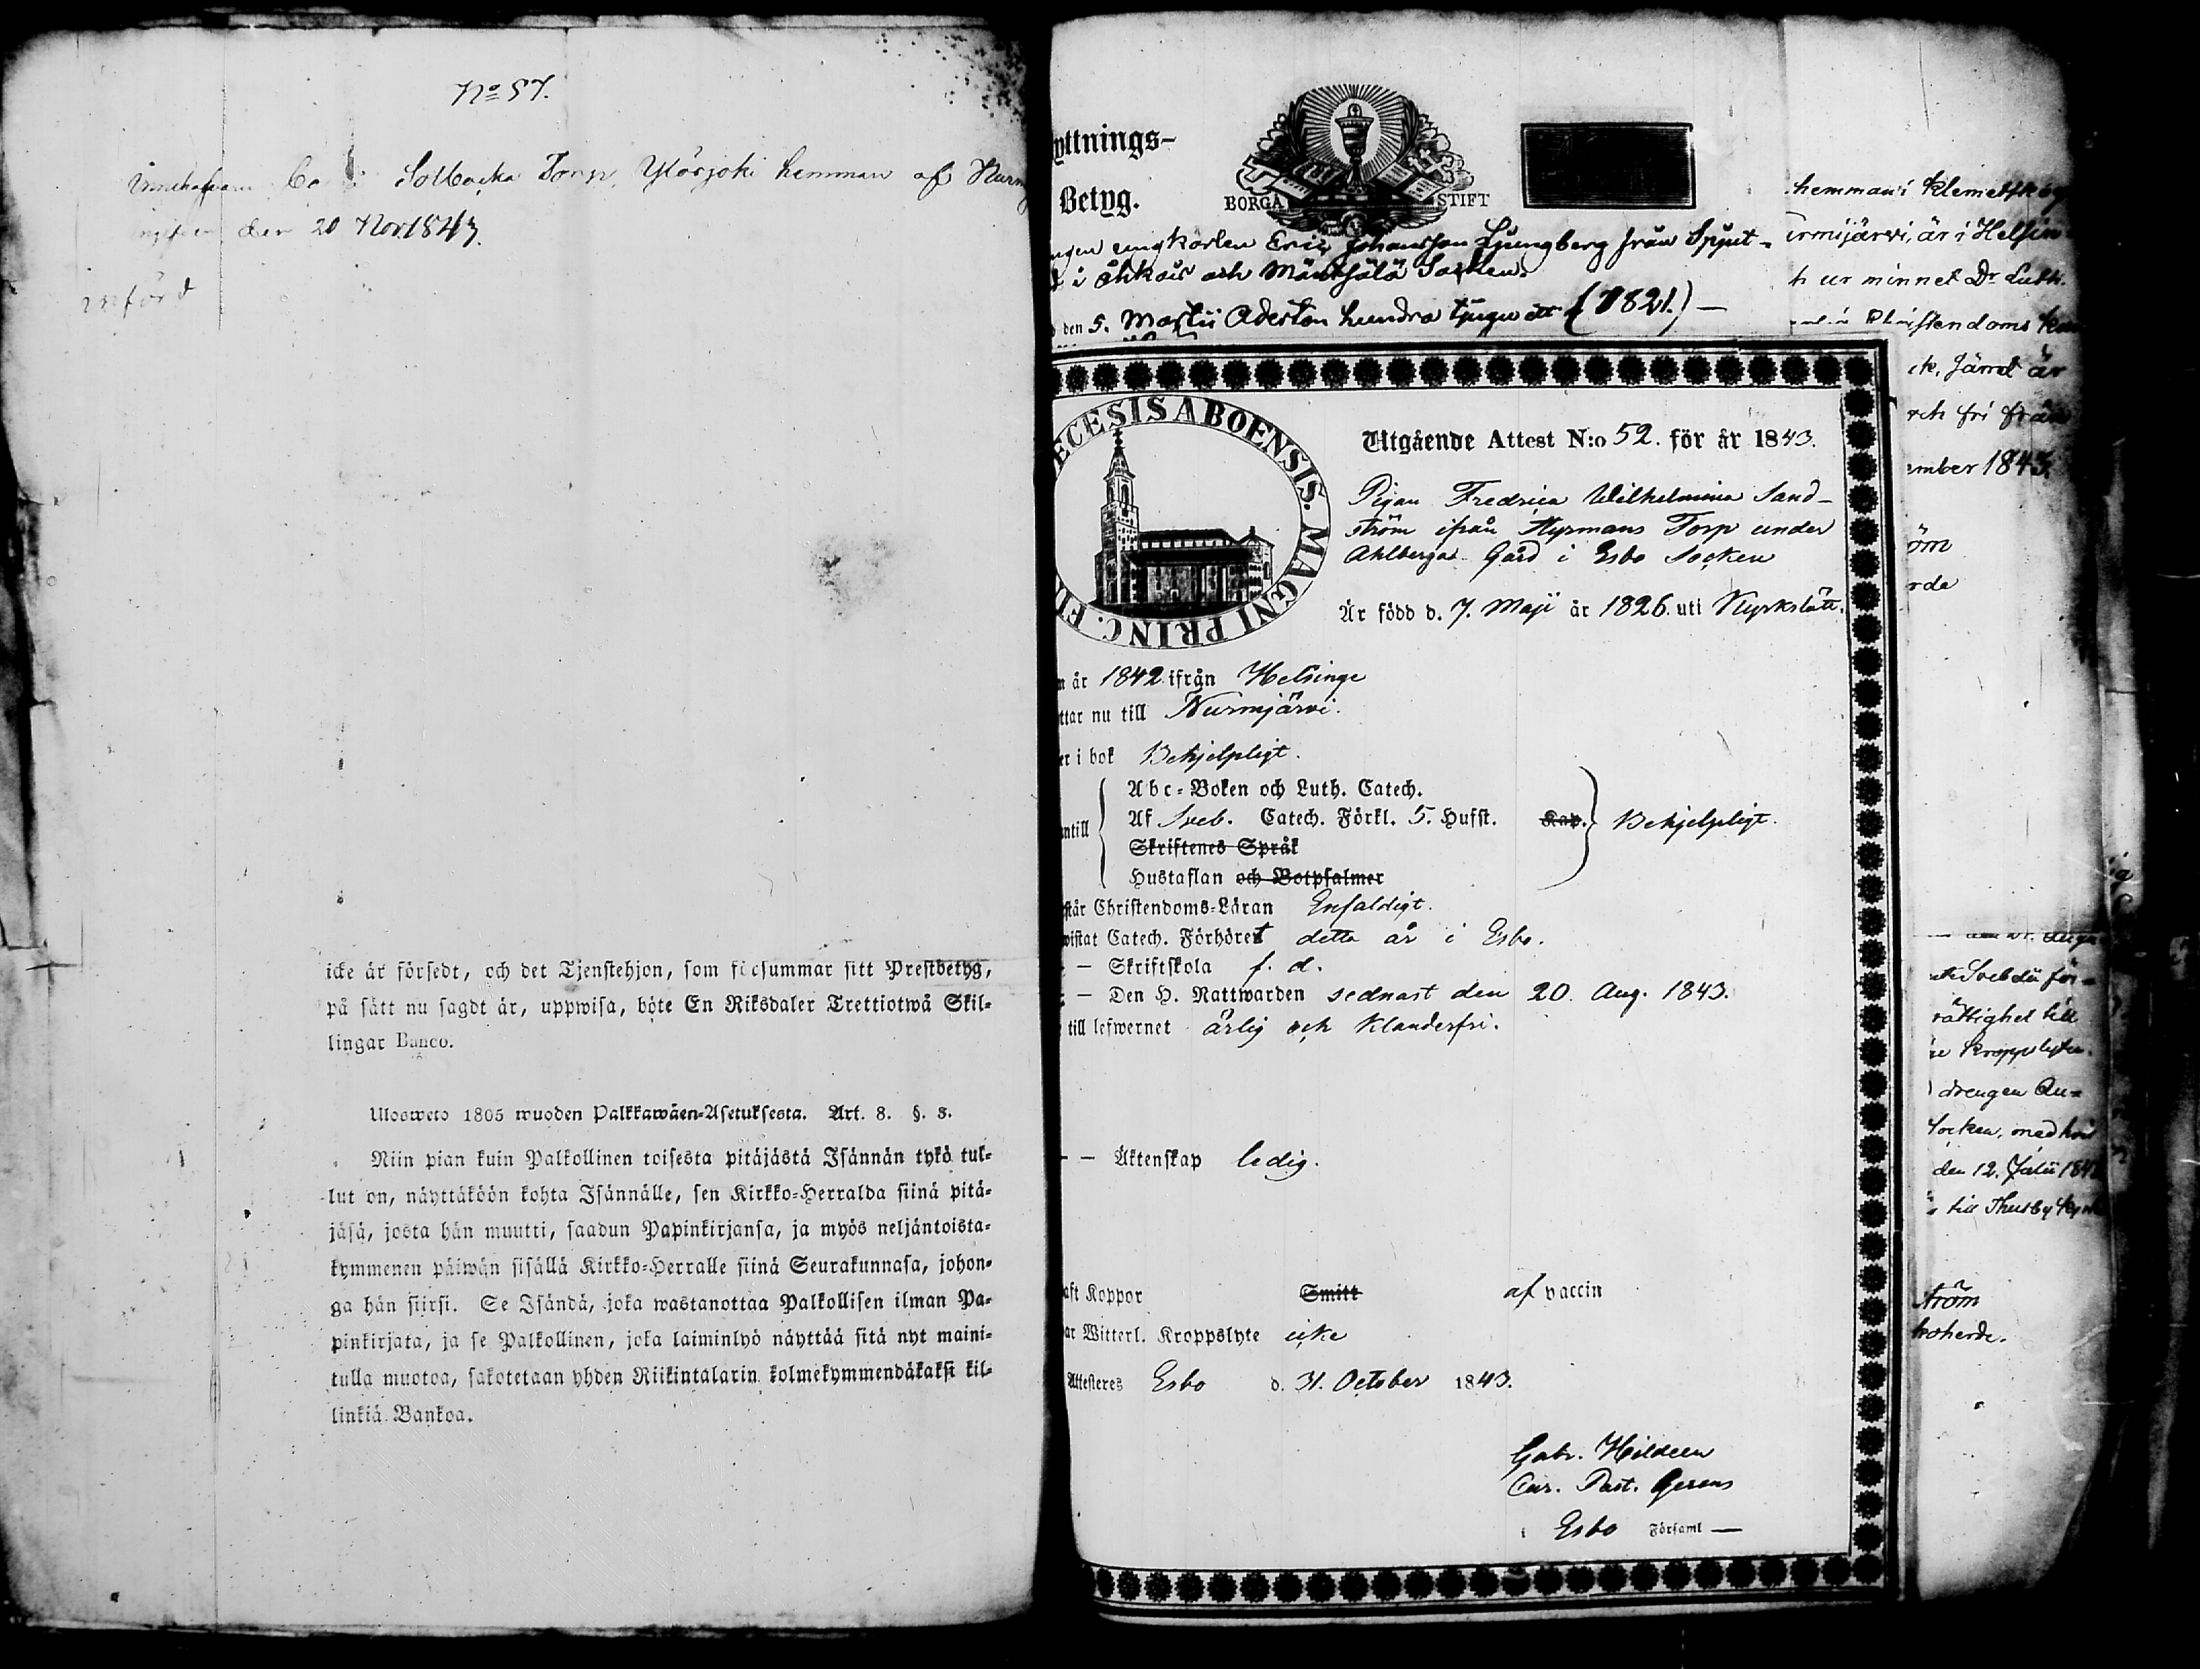 No 57.
Solbacka Torp, Ylösjoki hemman af Nurm
den 20 Nov 1843.
införd
icke är försedt, och det Tjenstehjon, som försummar sitt Prestbetyg,
på sätt nu sagdt är, uppwisa, böte En Riksdaler Trettiotwå Skil-
lingar Banco.
Ulosweto 1805 wuoden Palkkawäen-Asetuksesta. Art. 8. §. 3.
Niin pian kuin Palkollinen toisesta pitäjästä Isännän tykö tul-
lut on, näyttäköön kohta Isännälle, sen Kirkko-Herralda siinä pitä-
jäsä, josta hän muutti, saadun Papinkirjansa, ja myös neljäntoista-
kymmenen päiwän sisällä Kirkko-Herralle siinä Seurakunnasa, johon-
ga hän siirsi. Se Isändä, joka wastanottaa Palkollisen ilman Pa-
pinkirjata, ja se Palkollinen, joka laiminlyö näyttää sitä nyt maini-
tulla muotoa, sakotetaan yhden Riikintalarin kolmekymmendäkaksi kil-
linkiä Bankoa.
yttnings-
Betyg.
BORGÅ STIFT
ungkarlen Eric Johansson Ljungberg från Spjut-
i Ohkois och Mäntsälä Socken.
den 5. Martii Aderton hundra tjugu ett (1821.) —
ECESIS ABOENSIS. MAGNI PRINC. FI
Utgående Attest N:o 52. för år 1843.
Pigan Fredrica Wilhelmina Sand-
ström ifrån Myrmans Torp under
Ahlberga Gård i Esbo Socken
Är född d. 7. Maji år 1826. uti Kyrkslätt.
år 1842 ifrån Helsinge
ttar nu till Nurmijärvi.
er i bok Behjelpligt.
ntill
Abc-Boken och Luth. Catech.
Af Sveb. Catech. Förkl. 5. Hufst. Kap. Behjelpligt.
Skriftenes Språk
Hustaflan och Botpsalmer
står Christendoms-Läran Enfaldigt.
wistat Catech. Förhöret detta år i Esbo.
— Skriftskola f. d.
— Den H. Nattwarden sednast den 20. Aug. 1843.
till lefwernet ärlig och klanderfri.
— Äktenskap ledig.
aft Koppor Smitt af vaccin
ar Witterl. Kroppslyte icke
Attesteres Esbo d. 31. October 1843.
Gabr. Hildeen
Cur. Past. Gerens
i Esbo Församl —
hemman i Klemetskog
urmijärvi, är i Helsin-
ur minnet Dr. Luth.
Christendoms
järnt är
och fri från
ember 1843.
öm
rde
Svebelii för-
rättighet till
kroppslyten.
drengen
Socken, med
den 12. Julii 184
till Thusby
ström
koherde.